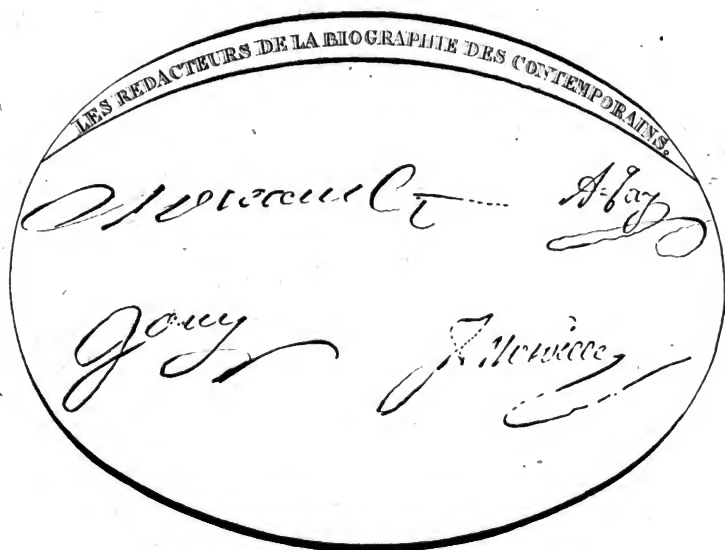 LES REDACTEURS DE LA BIOGRAPHIE DES CONTEMPORAINS.
A. Jay
Jouy
J. Norvins